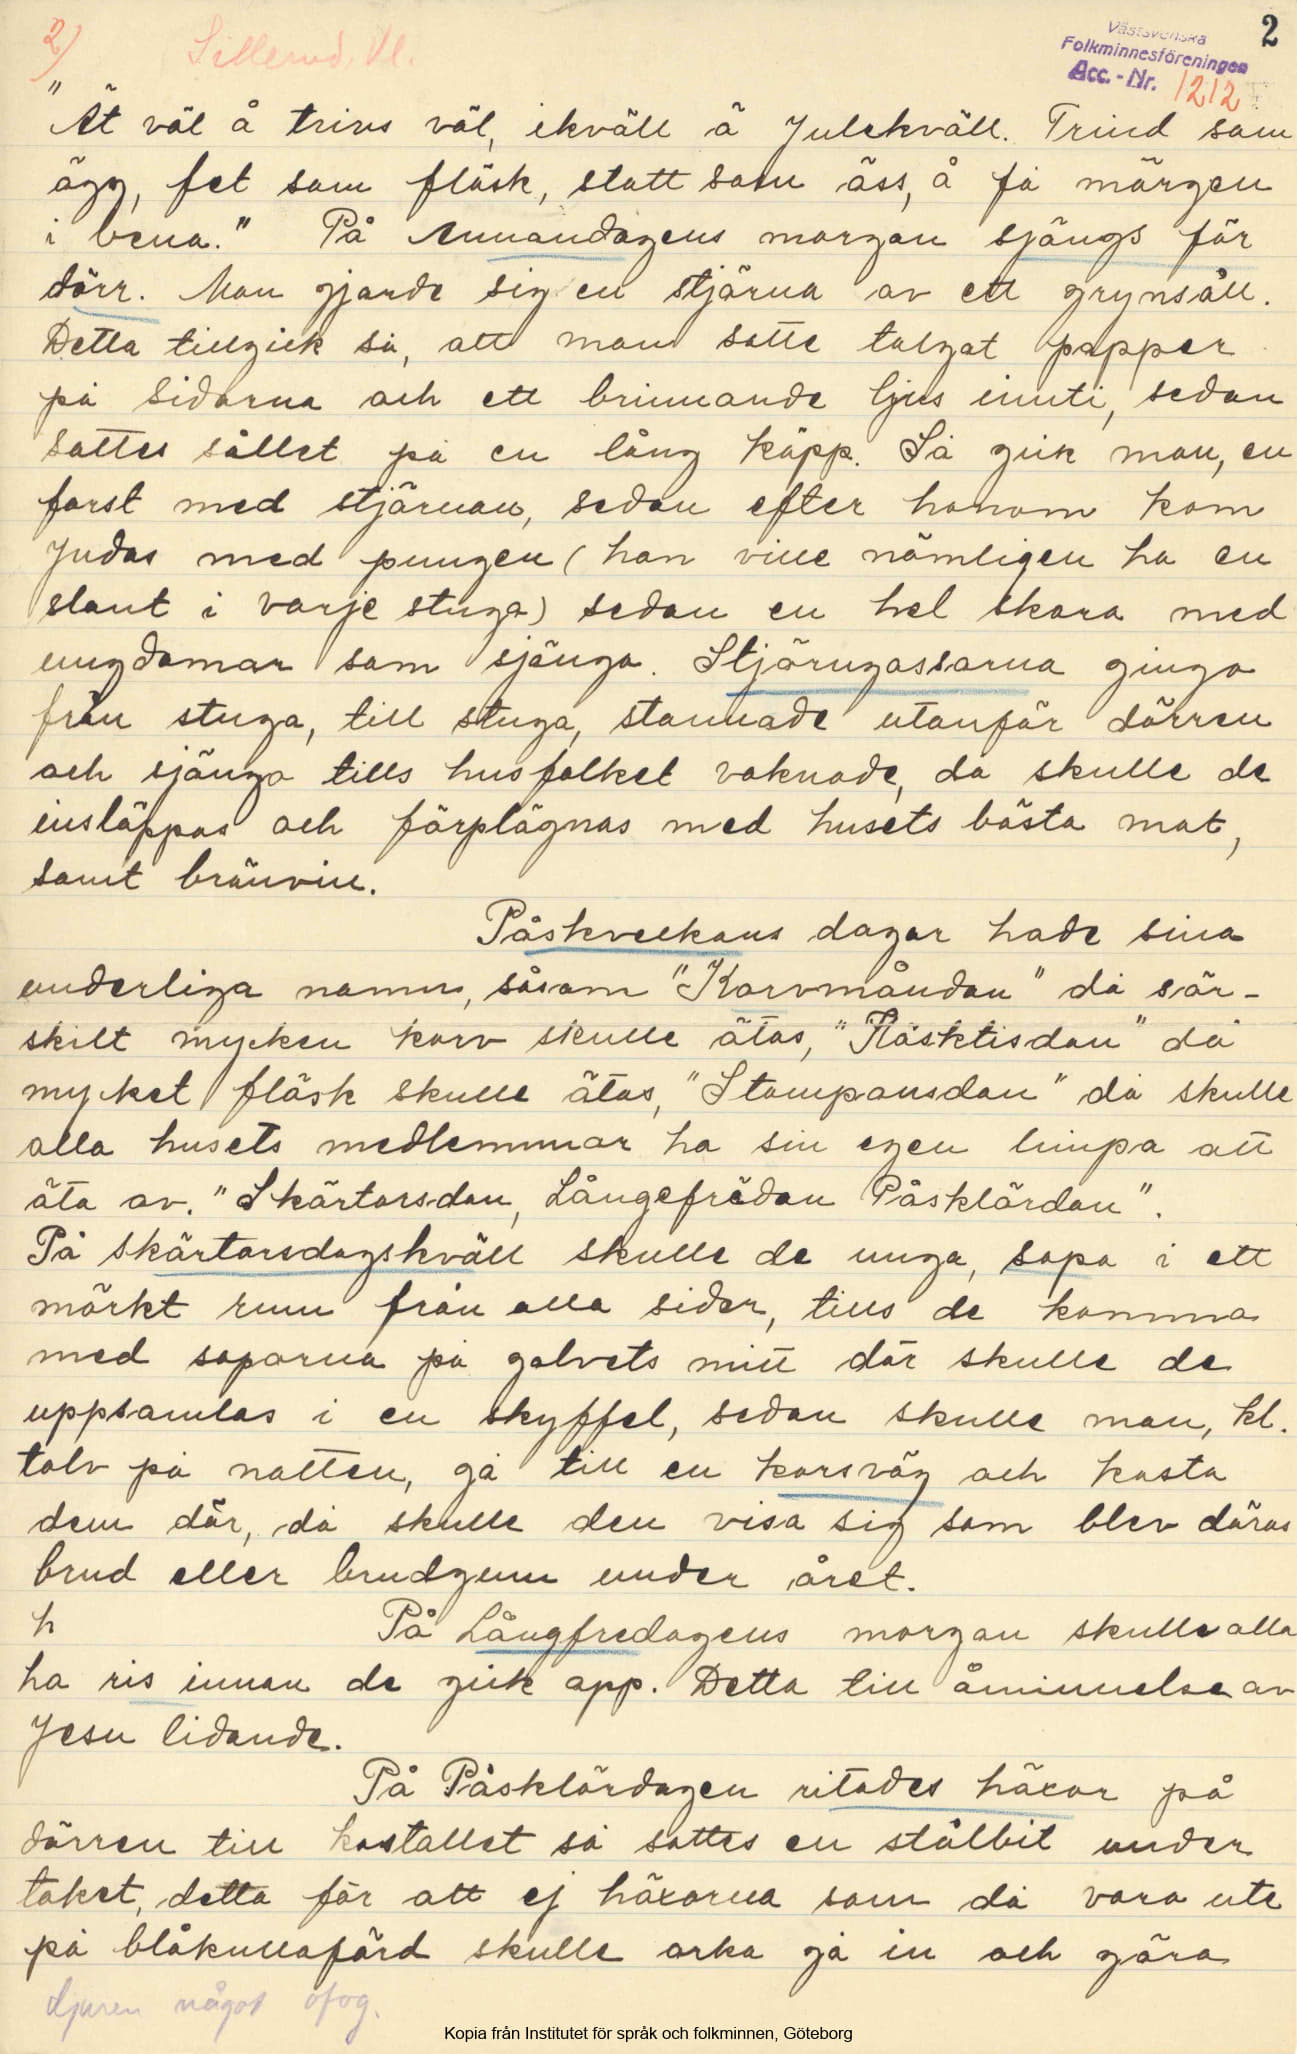 2
2) Sillerud, Vl.
Västsvenska
Folkminnesföreningen
Acc. - Nr. 1212
"Ät väl å trivs väl, ikväll ä Julekväll. Trind som
ägg, fet som fläsk, stott som äss, å få märgen
i bena." På Annandagens morgon sjängs för
dörr. Man gjorde sig en stjärna av ett grynsåll.
Detta tillgick så, att man satte talgat papper
på sidorna och ett brinnande ljus inuti, sedan
sattes sållet på en lång käpp. Så gick man, en
först med stjärnan, sedan efter honom kom
Judas med pungen (han ville nämligen ha en
slant i varje stuga) sedan en hel skara med
ungdomar som sjänga. Stjärngossarna gingo
från stuga, till stuga, stannade utanför dörren
och sjänga tills husfolket vaknade, då skulle de
insläppas och förplägnas med husets bästa mat,
samt brännvin.
Påskveckans dagar hade sina
underliga namn, såsom "Korvmåndan" då sär-
skilt mycken korv skulle ätas, "Fläsktisdan" då
mycket fläsk skulle ätas, "Stompansdan" då skulle
alla husets medlemmar ha sin egen limpa att
äta av. "Skärtorsdan, Långefrédan Påsklördan".
På skärtorsdagskväll skulle de unga, sopa i ett
mörkt rum från alla sidor, tills de komma
med soporna på golvets mitt där skulle de
uppsamlas i en skyffel, sedan skulle man, kl.
tolv på natten, gå till en korsväg och kasta
dem där, då skulle den visa sig som blev däras
brud eller brudgum under året.
h På Långfredagens morgon skulle alla
ha ris innan de gick opp. Detta till åminnelse av
Jesu lidande.
På Påsklördagen ritades häxor på
dörren till kostallet så sattes en stålbit under
taket, detta för att ej häxorna som då voro ute
på blåkullafärd skulle orka gå in och göra
djuren något ofog.
Kopia från Institutet för språk och folkminnen, Göteborg